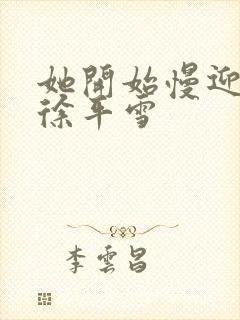 她開始慢迎
徐平雪
李雲昌